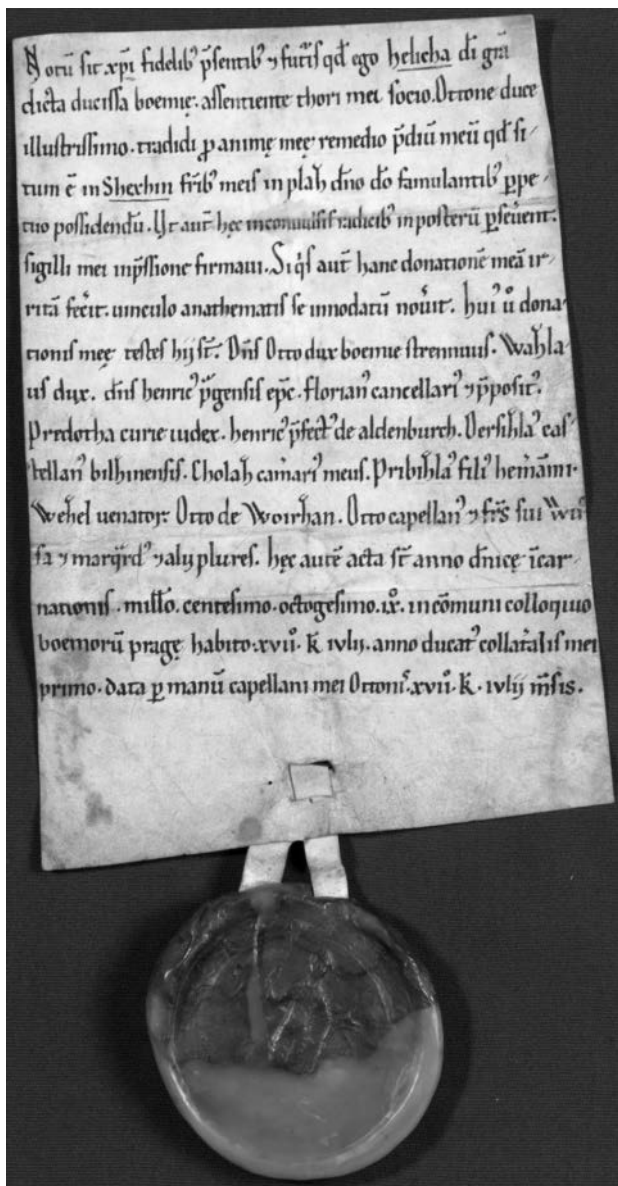 Notũ sit xp̃i fidelib᷒ p̃sentib᷒ ⁊ fut᷒is qd̃ ego helicha dĩ grã
dicta ducissa boemię. assentiente thori mei socio. Ottone duce
illustrissimo. tradidi ꝑ animę meę remedio p̃diũ meũ qd̃ si/
tum ẽ in Shechin fr̃ib᷒ meis in plah̃ dño dõ famulantib᷒ ꝑpe/
tuo possidendũ. Ut aut̃ hęc inconvulsis radicib᷒ in posterũ ꝑseṽent.
sigilli mei inp̃ssione firmavi. Si q̃s aut̃ hanc donationẽ meã ir/
ritã fec̃it. vinculo anathematis se innodatũ noṽit. hui᷒ ů dona/
tionis meę testes hij st̃. Dñs Otto dux boemie strennuus. Wah̃la/
us dux. dñs henric᷒ p̃gensis ep̃c. florian᷒ cancellari᷒ ⁊ p̃posit᷒.
Prrdotha curie iudex. henric᷒ p̃fect᷒ de aldenburch. Dersih̃la᷒ cas/
tellan᷒ bilh̃inensis. Cholah̃ cam̃ari᷒ meus. Pribih̃la᷒ fili᷒ hem̃ãmi.
Weh̃el venator. Otto de Woirhan. Otto capellan᷒ ⁊ fr̃s sui
⁊ marq̃rd᷒ ⁊ alij plures. hęc autẽ acta st̃ anno dñicę ĩcar/
nationis. mill̃o. centesimo. octogesimo. ix̊. in cõmuni colloquio
boemorũ pragę habito. xvii̊. k̃ iulij. anno ducat᷒ collat̃alis mei
primo. data ꝑ manũ capellani mei Ottoni᷒. xvii̊. k̃. iulij m̃sis.